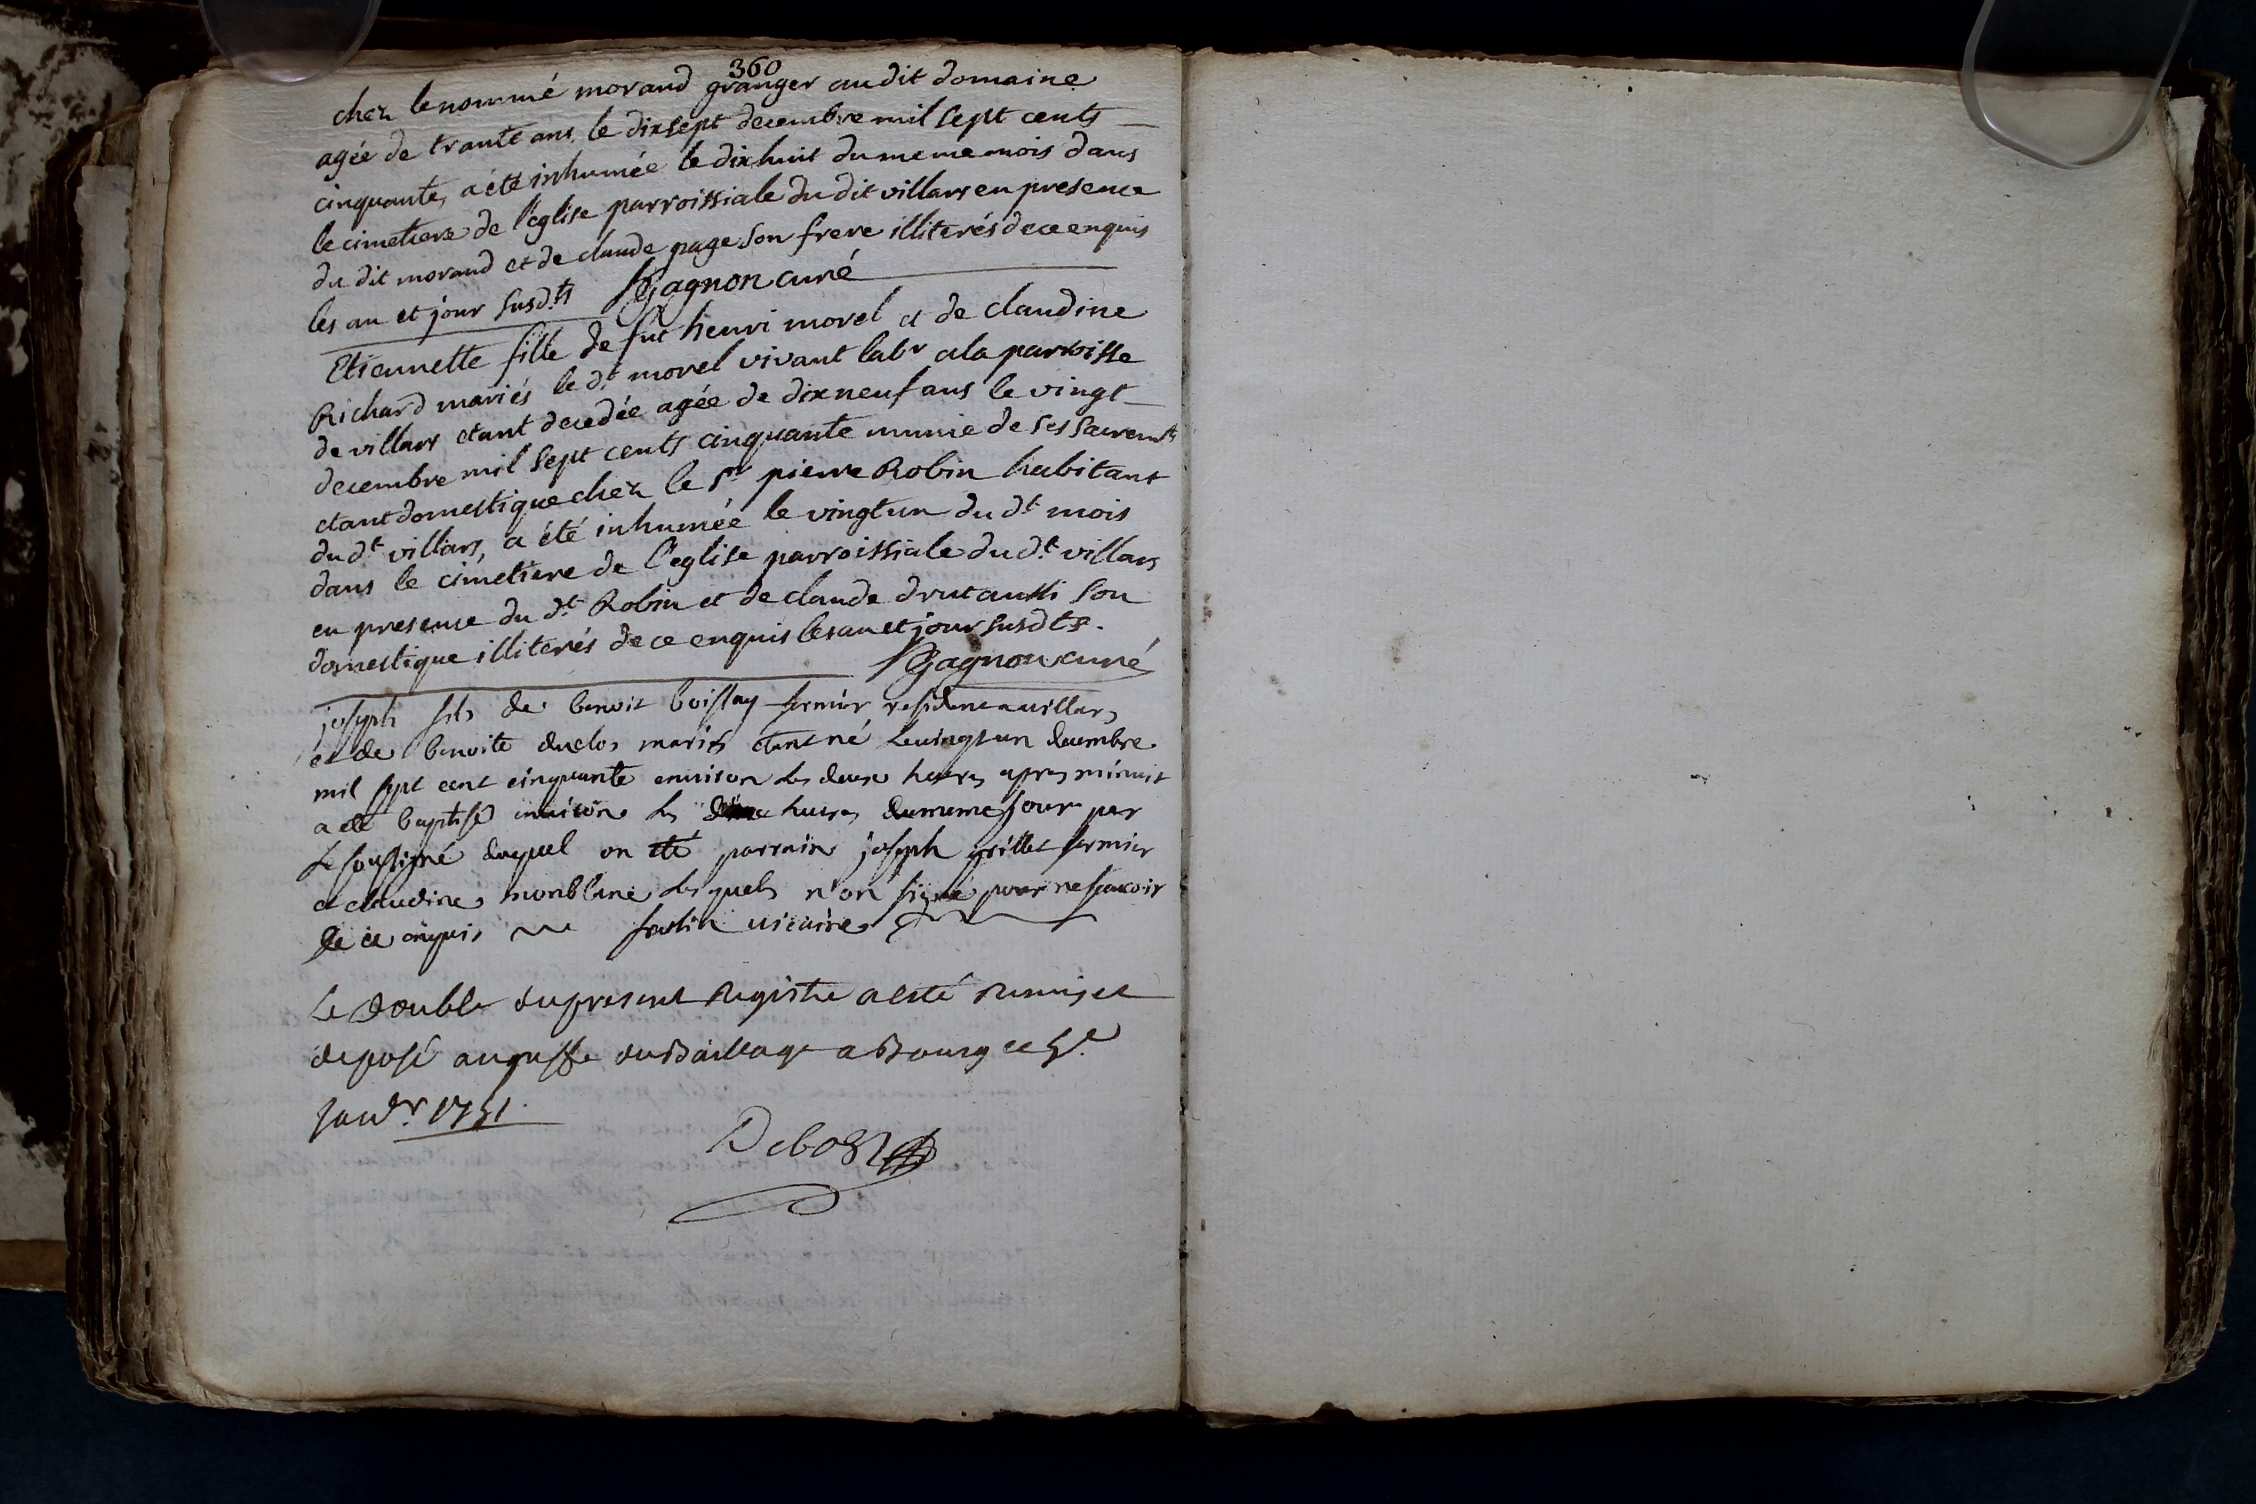 360
chez le nommé morand granger au dit domaine
agée de trante ans, le dixsept decembre mil sept cents
cinquante, a été inhumée le dixhuit du meme mois dans
le cimetiere de l'église parroissiale du dit villars en presence
du dit morand et de claude page son frere illiterés de ce enquis
les an et jour susd.ts Gagnon curé
Etiennette fille de fut henri morel et de claudine
Richard mariés le d.t morel vivant labr a la parroisse
de villars etant decedée agée de dixneuf ans le vingt
decembre mil sept cents cinquante munie de ses sacremts
etant domestique chez le Sr pierre Robin habitant
du d.t villars, a été inhumée le vingtun du d.t mois
dans le cimetiere de l'eglise parroissiale du d.t villars
en presence du d.t Robin et de claude drut aussi son
domestique illiterés de ce enquis les an et jour susdts.
Gagnon curé
joseph fils de benoit boissay fermier residant a villars
et de benoite duclos mariés etant né le vingt un decembre
mil sept cent cinquante environ les deux heures apres minuit
a eté baptisé environ les heures du meme jour par
le soussigné duquel on eté parrain joseph grillet fermier
et claudine monblanc lesquels n'on signé pour ne scavoir
de ce enquis vicaire
Le double du present Registre a esté remis et
deposé au greffe du Baillage a Bourg ce 5e
Janv.r 1751
Debost